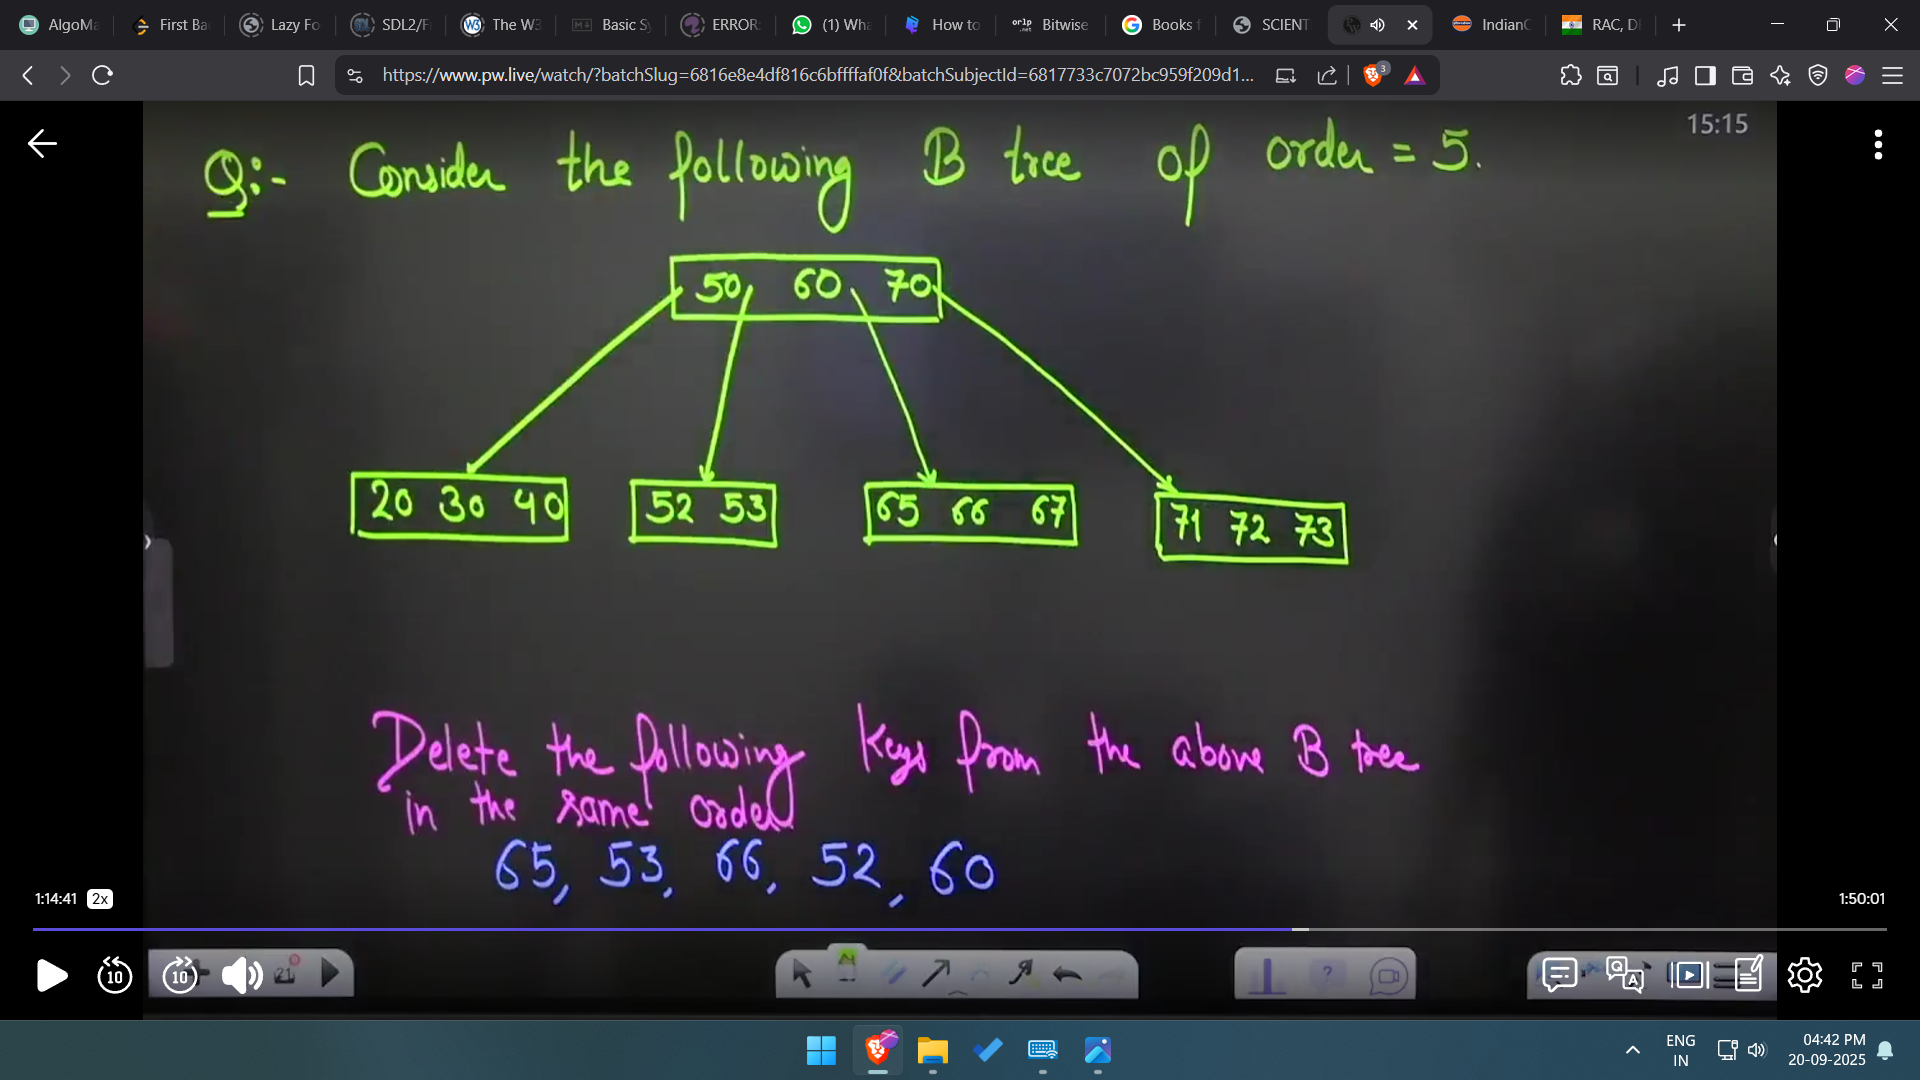 AlgoMa
First Ba
Lazy Fo
SDL2/F
The W3
Basic Sy
ERROR:
(1) Wha
How to
Bitwise
Books f
SCIENT
IndianO
RAC, D
https://www.pw.live/watch/?batchSlug=6816e8e4df816c6bffffaf0f&batchSubjectId=6817733c7072bc959f209d1...
3
15:15
Q:- Consider the following B tree of order = 5.
50 60 70
20 30 40
52 53
65 66 67
71 72 73
Delete the following keys from the above B tree
in the same order
65, 53, 66, 52, 60
1:14:41 2x
1:50:01
10
10
21
ENG
IN
04:42 PM
20-09-2025